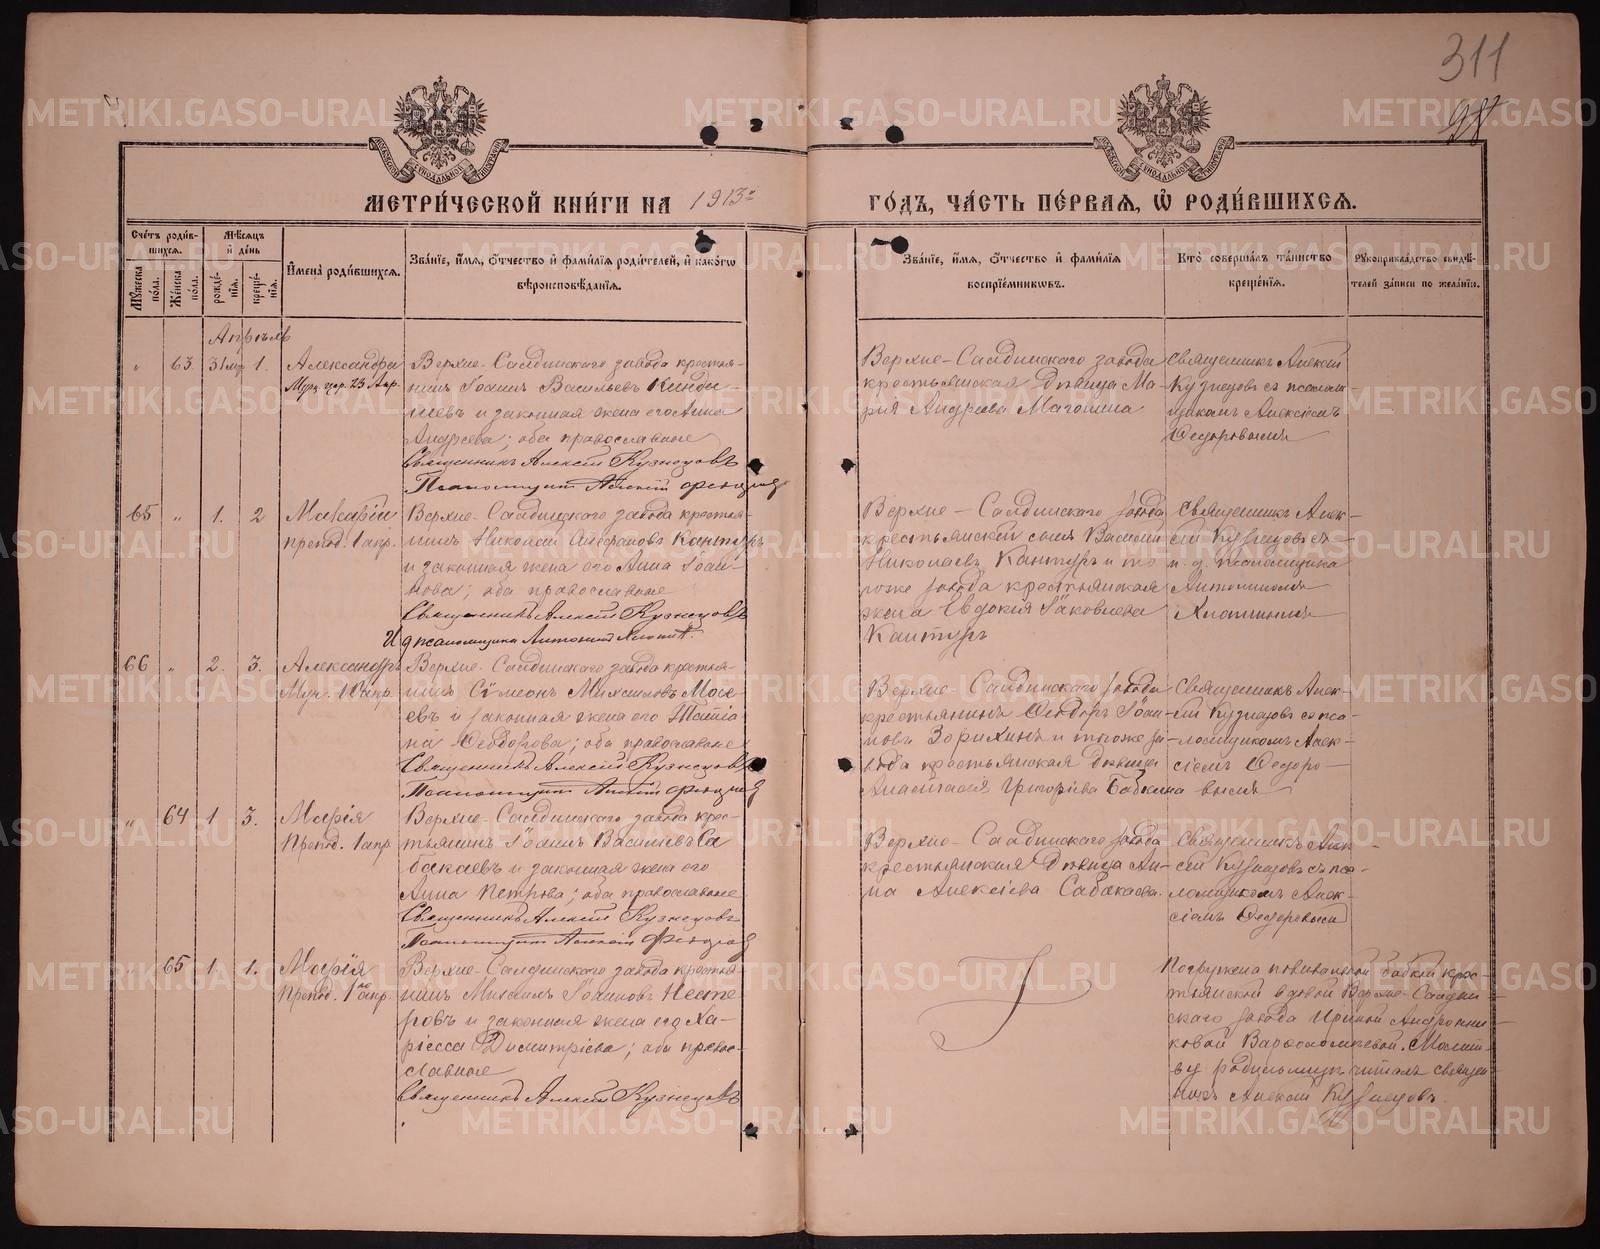 311
98
МОСКОВСКОЙ СѴНОДАЛЬНОЙ ТИПОГРАФІИ
МЕТРИ́ЧЕСКОЙ КНИ́ГИ НА 1913й ГО́ДЪ, ЧА́СТЬ ПЕ́РВАЯ, Ѽ РОДИ́ВШИХСЯ.
Сче́тъ роди́вшихся.
Му́жеска по́ла.
Же́нска по́ла.
Мѣ́сяцъ и́ де́нь
рожде́нія.
креще́нія.
И҆мена̀ роди́вшихся.
Зва́ніе, и҆́мя, ѻ҆́тчество и҆ фами́лія роди́телей, и҆ како́гѡ вѣроисповѣ́данія.
Зва́ніе, и҆́мя, ѻ҆́тчество и҆ фами́лія воспріе́мниковъ.
Кто̀ соверша́лъ та́инство креще́нія.
Рꙋкоприкла́дство свидѣ́телей за́писи по жела́нію.
Апрѣль
" 63 31 мр 1. Александра
Муч. цар. 23 Апр.
Верхне-Салдинскаго завода крестья-
нинъ Іоаннъ Васильевъ
и законная жена его Анна
Андреева; оба православные
Священникъ Алексій Кузнецовъ
Псаломщикъ Алексій Ѳедоровъ
Верхне-Салдинскаго завода
крестьянская дѣвица Ма-
рія Андреева Магонина
Священникъ Алексій
Кузнецовъ съ псалом-
щикомъ Алексіемъ
Ѳедоровымъ
65 " 1. 2 Макарій
препод. 1 апр.
Верхне-Салдинскаго завода крестья-
нинъ Николай Кантуръ
и законная жена его Анна Іоан-
нова; оба православные
Священникъ Алексій Кузнецовъ
И д псаломщика Антоній
Верхне-Салдинскаго завода
крестьянскій сынъ Василій
Николаевъ Кантуръ и то
гоже завода крестьянская
жена Евдокія Іаковлева
Кантуръ
Священникъ Алек-
сій Кузнецовъ съ
и. д. псаломщика
Антоніемъ
66 " 2. 3. Александръ
Муч.
Верхне-Салдинскаго завода крестья-
нинъ Сѵмеонъ Михаиловъ Мосе-
евъ и законная жена его Татіа-
на Ѳеодорова; оба православные
Священникъ Алексій Кузнецовъ
Псаломщикъ Алексій Ѳедоровъ
Верхне-Салдинскаго завода
крестьянинъ Ѳеодоръ Іоан-
новъ Зорихинъ и тогоже за-
вода крестьянская дѣвица
Анастасія Григоріева Бабкина
Священникъ Алек-
сій Кузнецовъ съ пса-
ломщикомъ Алек-
сіемъ Ѳедоро-
вымъ
" 64 1 3. Марія
Препод. 1 апр.
Верхне-Салдинскаго завода крес-
тьянинъ Іоаннъ Васильевъ Са
бакаевъ и законная жена его
Анна Петрова; оба православные
Священникъ Алексій Кузнецовъ
Псаломщикъ Алексій Ѳедоровъ
Верхне-Салдинскаго завода
крестьянская дѣвица Ан-
на Алексіева Сабакаева.
Священникъ Алек-
сій Кузнецовъ съ пса-
ломщикомъ Алек-
сіемъ Ѳедоровымъ
" 65 1 1. Марія
Препод. 1го апр.
Верхне-Салдинскаго завода крестья
нинъ Михаилъ Іоанновъ Несте
ровъ и законная жена его Ха-
риесса Димитріева; оба право-
славные
Священникъ Алексій Кузнецовъ
Погружена повивальной бабкой крес-
тьянской вдовой Верхне-Салдин-
скаго завода Ириной Андронни-
ковой Варѳоломѣевой. Молит-
ву родильницѣ читалъ священ-
никъ Алексій Кузнецовъ.
METRIKI.GASO-URAL.RU